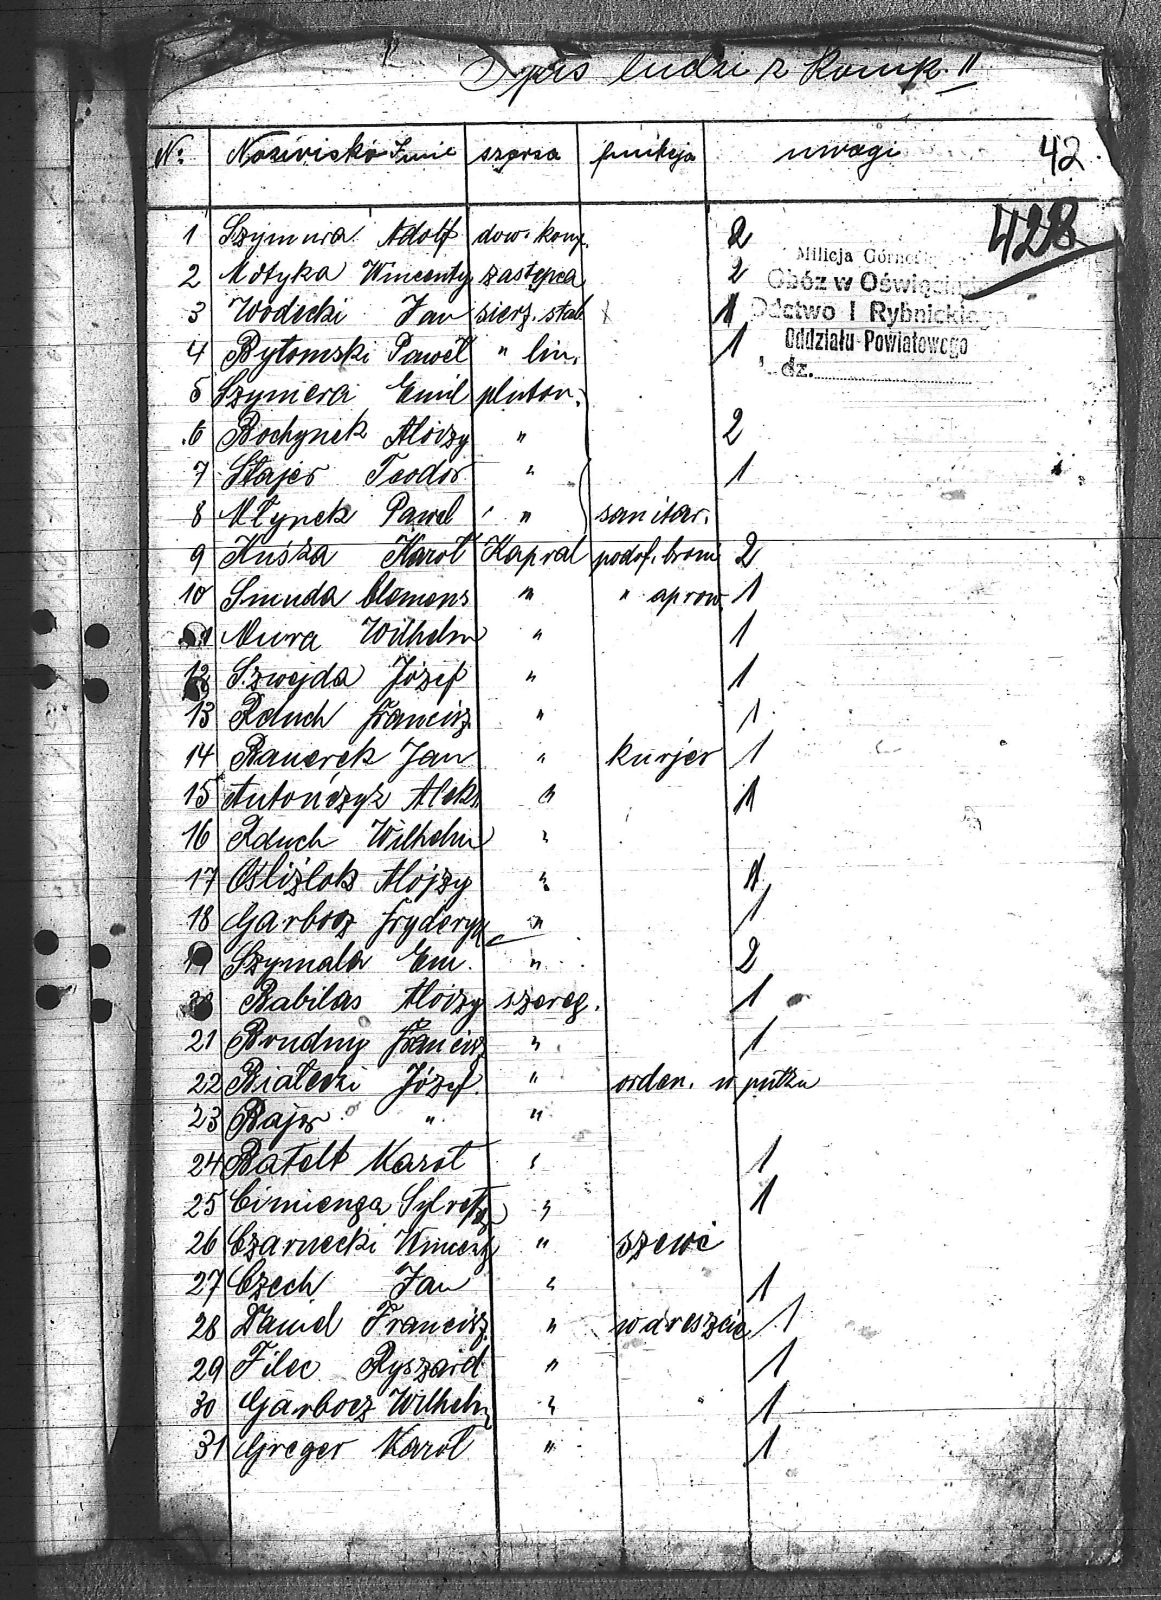 Spis ludzi z komp. II
No. Nazwisko Imie szarza funkcja uwagi 42
428
1 Szymura Adolf dow. komp. 2
Milicja Górno
2 Motyka Wincenty zastępca 2
Obóz w Oświęcimiu
3 Wodecki Jan sierż. stab 1
Ddctwo I Rybnickiego
4 Bytomski Paweł " lin. 1
Oddziału Powiatowego
dz.
5 Szymera Emil pluton.
6 Bochynek Alojzy " 2
7 Stajer Teodor " 1
8 Młynek Paweł " sanitar.
9 Kuśka Karol Kapral podof. broni 2
10 Smuda Clemens " " aprow. 1
11 Mura Wilhelm " 1
12 Szwejda Józef " 1
13 Rduch Francisz. " 1
14 Bauerek Jan " kurjer 1
15 Antończyz Aleks. " 1
16 Rduch Wilhelm "
17 Oślizlok Alojzy " 1
18 Garbocz Fryderyk " 1
19 Szymala Em. " 2
20 Babilas Alojzy szereg. 1
21 Brudny Francisz " 1
22 Białecki Józef " orden. w pułku
23 Bajer " "
24 Batelt Karol " 1
25 Cimienga Sylwester " 1
26 Czarnecki Wincenty " szewc
27 Czech Jan " 1
28 Daniel Francisz. " w areszcie 1
29 Filec Ryszard " 1
30 Garbocz Wilhelm " 1
31 Greger Karol " 1